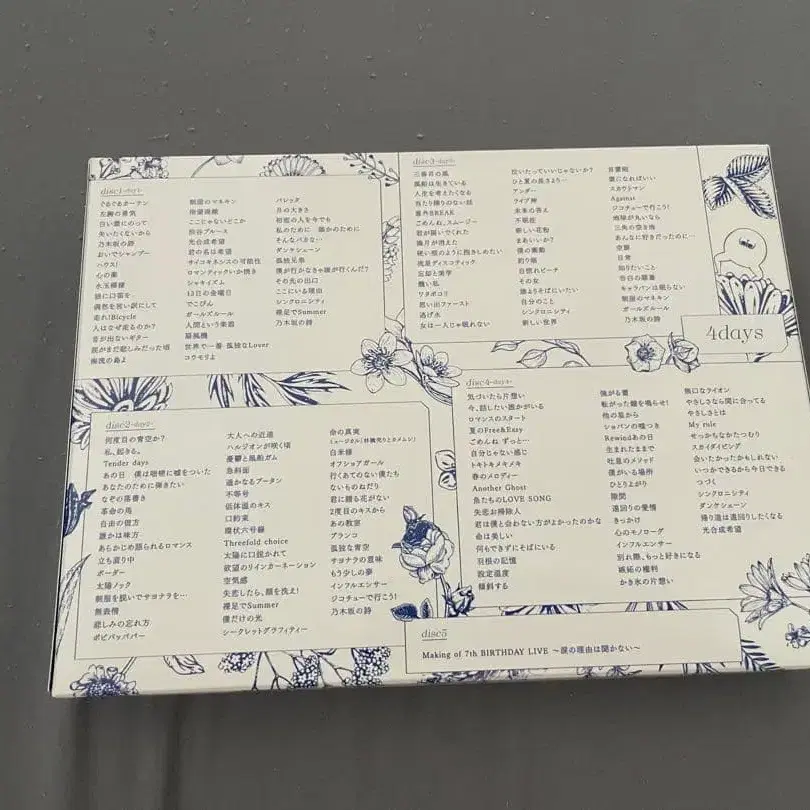 disc1 -day1-
ぐるぐるカーテン
左胸の勇気
白い雲にのって
失いたくないから
乃木坂の詩
おいでシャンプー
ハウス!
心の薬
水玉模様
狼に口笛を
偶然を言い訳にして
走れ!Bicycle
人はなぜ走るのか?
音が出ないギター
涙がまだ悲しみだった頃
海流の島よ
制服のマネキン
指望遠鏡
ここじゃないどこか
渋谷ブルース
光合成希望
君の名は希望
サイコキネシスの可能性
ロマンティックいか焼き
シャキイズム
13日の金曜日
でこぴん
ガールズルール
人間という楽器
扇風機
世界で一番 孤独なLover
コウモリよ
バレッタ
月の大きさ
初恋の人を今でも
私のために 誰かのために
そんなバカな…
ダンケシェーン
孤独兄弟
僕が行かなきゃ誰が行くんだ?
その先の出口
ここにいる理由
シンクロニシティ
裸足でSummer
乃木坂の詩
disc2 -day2-
何度目の青空か?
私、起きる。
Tender days
あの日 僕は咄嗟に嘘をついた
あなたのために弾きたい
なぞの落書き
革命の馬
自由の彼方
誰かは味方
あらかじめ語られるロマンス
立ち直り中
ボーダー
太陽ノック
制服を脱いでサヨナラを…
無表情
悲しみの忘れ方
ポピパッパパー
大人への近道
ハルジオンが咲く頃
憂鬱と風船ガム
急斜面
遥かなるブータン
不等号
低体温のキス
口約束
環状六号線
Threefold choice
太陽に口説かれて
欲望のリインカーネーション
空気感
失恋したら、顔を洗え!
裸足でSummer
僕だけの光
シークレットグラフィティー
命の真実
[ミュージカル「林檎売りとカメムシ」]
白米様
オフショアガール
行くあてのない僕たち
ないものねだり
君に贈る花がない
2度目のキスから
あの教室
ブランコ
孤独な青空
サヨナラの意味
もう少しの夢
インフルエンサー
ジコチューで行こう!
乃木坂の詩
disc3 -day3-
三番目の風
風船は生きている
人生を考えたくなる
当たり障りのない話
意外BREAK
ごめんね、スムージー
君が扉いてくれた
満月が消えた
硬い殻のように抱きしめたい
流星ディスコティック
忘却と美学
醜い私
ワタボコリ
思い出ファースト
逃げ水
女は一人じゃ眠れない
泣いたっていいじゃないか?
ひと夏の長さより…
アンダー
ライブ神
未来の答え
不眠症
新しい花粉
まあいいか?
僕の衝動
釣り堀
自惚れビーチ
その女
誰よりそばにいたい
自分のこと
シンクロニシティ
新しい世界
言霊砲
雲になればいい
スカウトマン
Against
ジコチューで行こう!
地球が丸いなら
三角の空き地
あんなに好きだったのに…
空扉
日常
知りたいこと
告白の順番
キャラバンは眠らない
制服のマネキン
ガールズルール
乃木坂の詩
4days
disc4 -day4-
気づいたら片想い
今、話したい誰かがいる
ロマンスのスタート
夏のFree&Easy
ごめんね ずっと…
自分じゃない感じ
トキトキメキメキ
春のメロディー
Another Ghost
魚たちのLOVE SONG
失恋お掃除人
君は僕と会わない方がよかったのかな
命は美しい
何もできずにそばにいる
羽根の記憶
設定温度
傾斜する
傾斜する
僕がいる場所
ひとりよがり
隙間
遠回りの愛情
きっかけ
心のモノローグ
インフルエンサー
別れ際、もっと好きになる
嫉妬の権利
かき氷の片想い
転がった鐘を鳴らせ!
他の星から
ショパンの嘘つき
Rewindあの日
生まれたままで
吐息のメソッド
無口なライオン
やさしさなら間に合ってる
やさしさとは
My rule
せっかちなかたつむり
スカイダイビング
会いたかったかもしれない
いつかできるから今日できる
つづく
シンクロニシティ
ダンケシェーン
帰り道は遠回りしたくなる
光合成希望
disc5
Making of 7th BIRTHDAY LIVE ～涙の理由は聞かない～